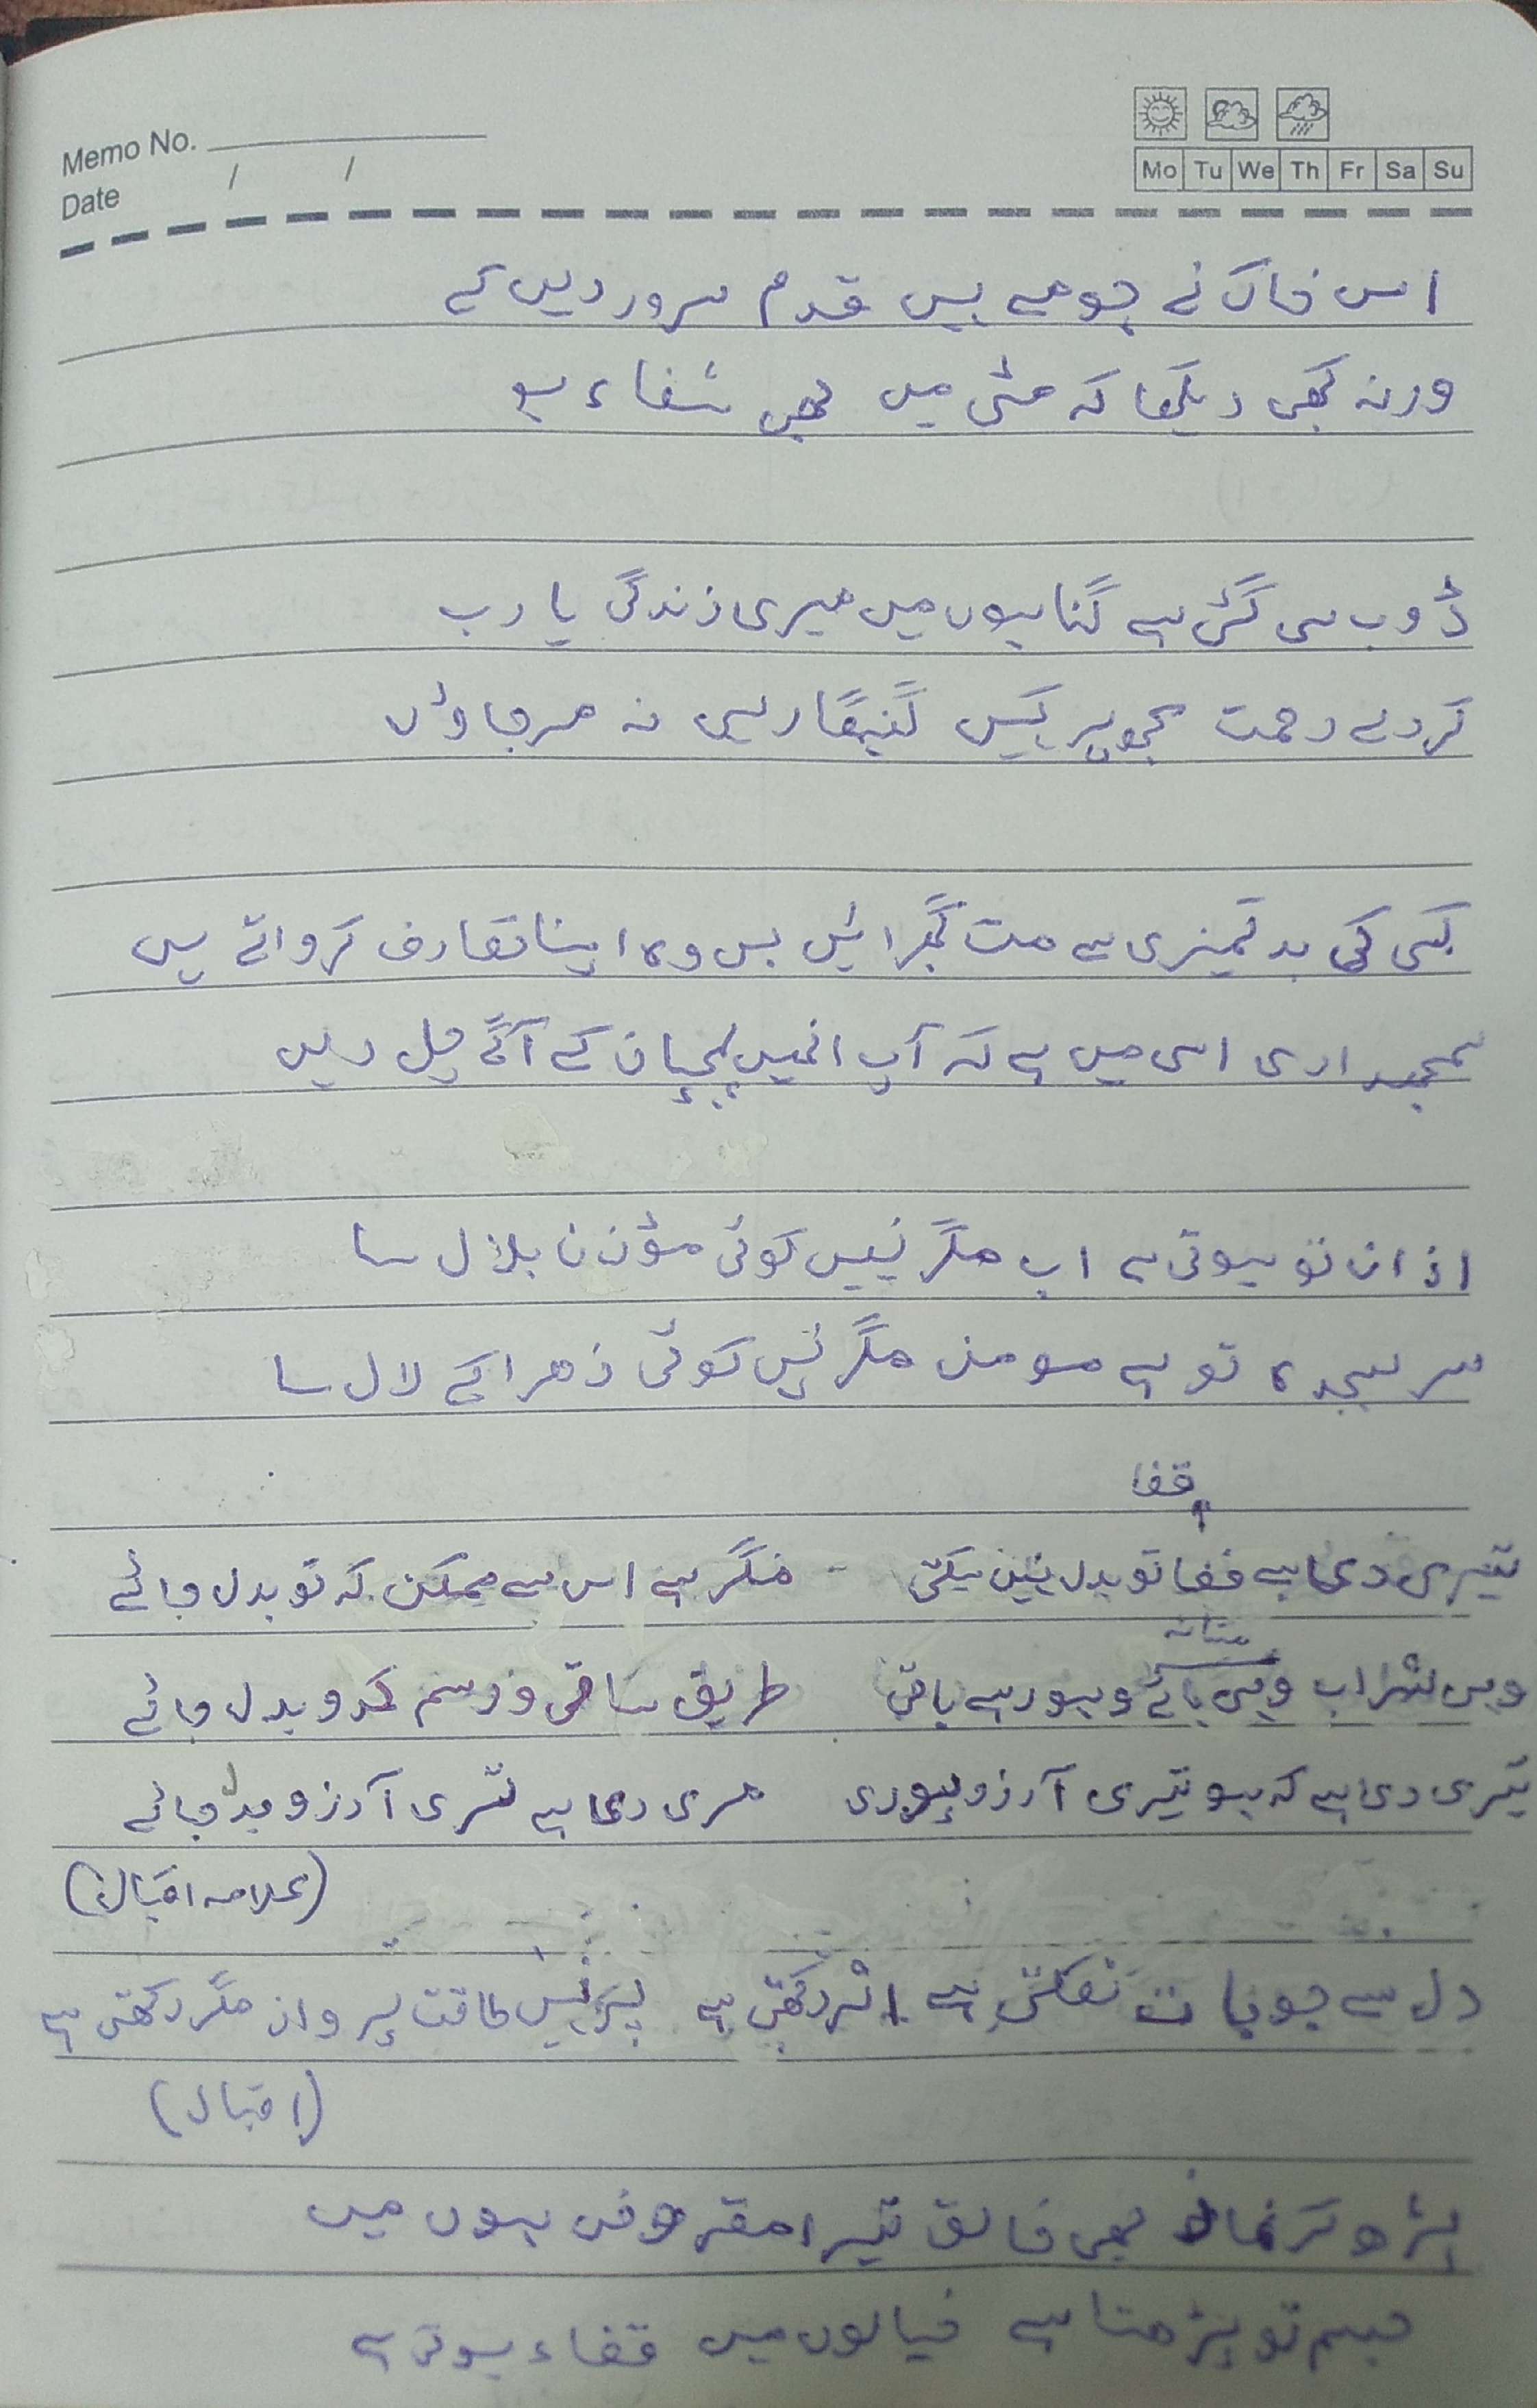 Memo No.
Date / /
Mo Tu We Th Fr Sa Su
اس خاک نے چومے ہیں قدم سرور دیں کے
ورنہ کبھی دیکھا کہ مٹی میں بھی شفاء ہو
ڈوب سی گئی ہے گناہوں میں میری زندگی یا رب
کر دے رحمت مجھ پر کہیں گنہگار ہی نہ مر جاؤں
کسی کی بدتمیزی سے مت گھبرائیں بس وہ اپنا تعارف کرواتے ہیں
سمجھداری اسی میں ہے کہ آپ انہیں پہچان کے آگے چل دیں
اذان تو ہوتی ہے اب مگر نہیں کوئی مؤذن بلال سا
سر سجدہ تو ہے مومن مگر نہیں کوئی زھرا کے لال سا
قضا
تیری دعا ہے قضا تو بدل نہیں سکتی - مگر ہے اس سے ممکن کہ تو بدل جائے
مستانہ
وہی شراب وہی ہائے و ہو رہے باقی طریق ساقی و رسم کدو بدل جائے
تیری دعا ہے کہ ہو تیری آرزو پوری مری دعا ہے تری آرزو بدل جائے
(علامہ اقبال)
دل سے جو بات نکلتی ہے اثر رکھتی ہے پر نہیں طاقت پرواز مگر رکھتی ہے
(اقبال)
پڑھ کر نماز بھی خالق تیرا مقروض ہوں میں
جسم تو پڑھتا ہے خیالوں میں قضاء ہوتی ہے